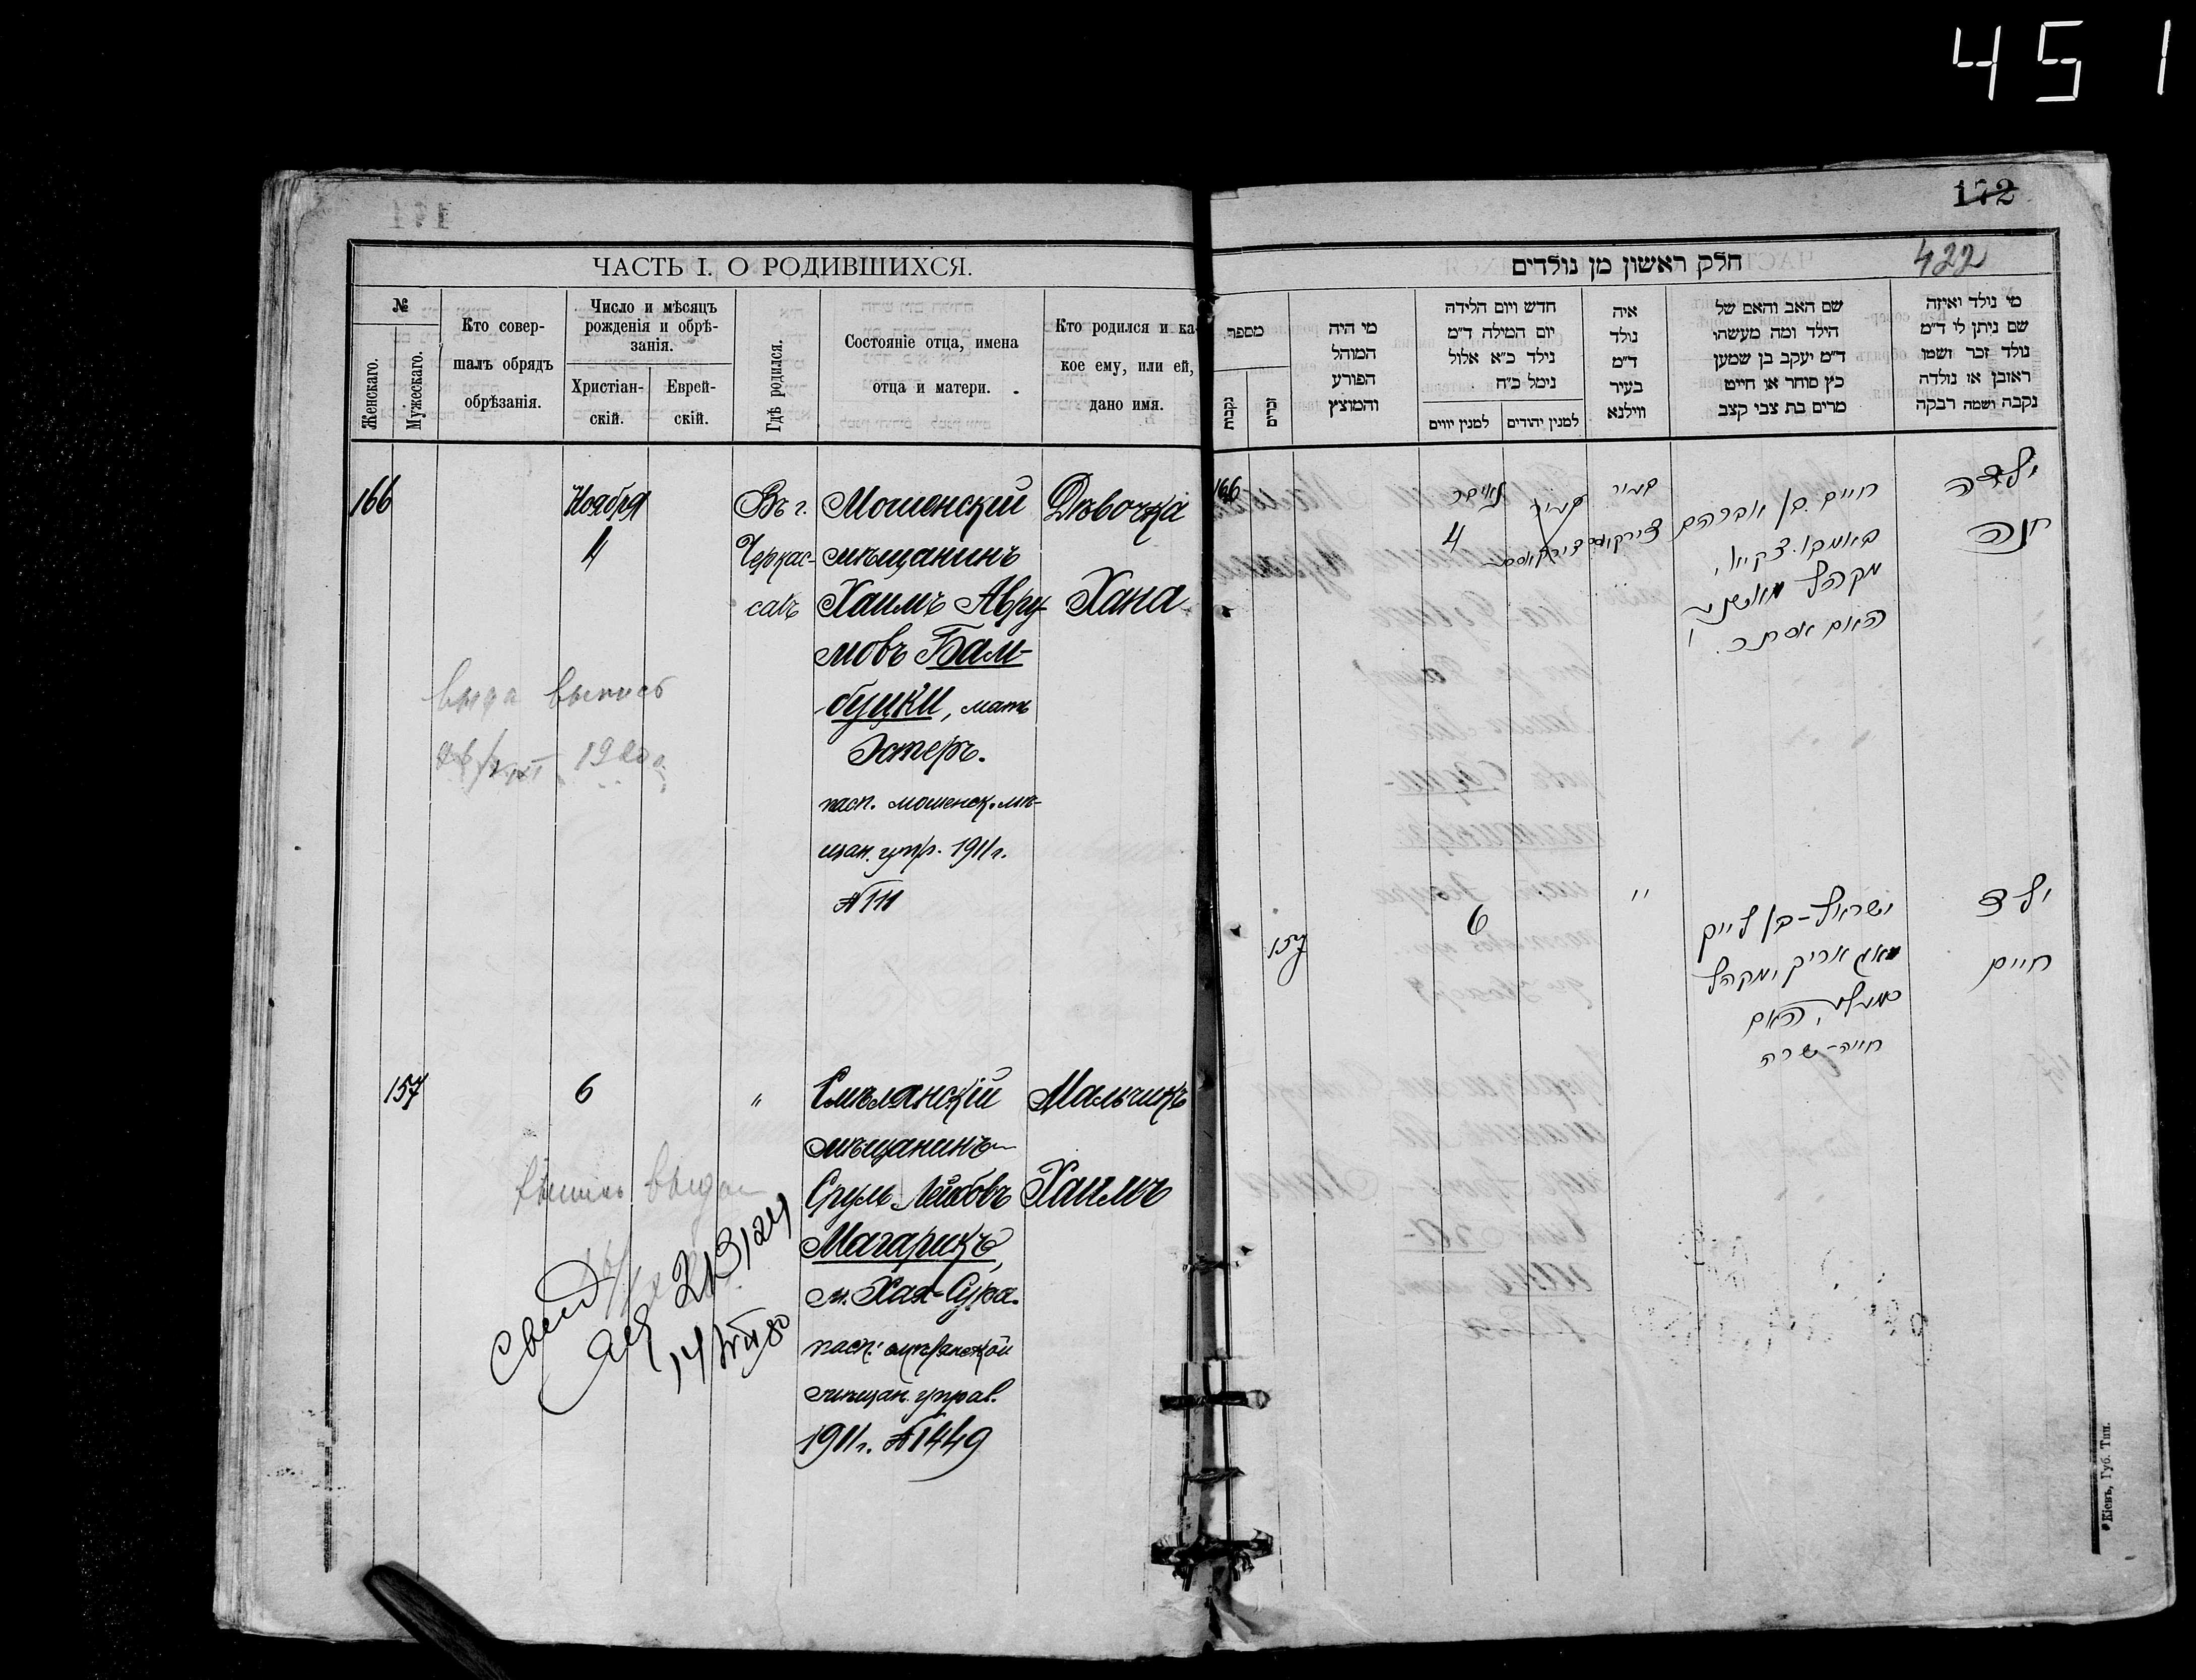 451
172
422
ЧАСТЬ I. О РОДИВШИХСЯ.
№
Женскаго.
Мужескаго.
Кто совер-
шалъ обрядъ
обрѣзанія.
Число и мѣсяцъ
рожденія и обрѣ-
занія.
Христіан-
скій.
Еврей-
скій.
Гдѣ родился.
Состояніе отца, имена
отца и матери.
Кто родился и ка-
кое ему, или ей,
дано имя.
166
Ноября
4
Въ г.
Черкас-
сахъ
Мошенскій
мѣщанинъ
Хаимъ Авру-
мовъ Бам-
буцки, мать
Эстеръ.
пасп. мошенск. мѣ-
щан. упр. 1911 г.
№ 111
Дѣвочка
Хана
выпись
157
6
"
Смѣлянскій
мѣщанинъ
Сруль Лейбовъ
Магарикъ,
м. Хая-Сура.
мѣщан. управ.
1911 г. № 1449
Мальчикъ
Хаимъ
חלק ראשון מן נולדים
מספר
נקבות
זכרים
מי היה
המוהל
הפורע
והמוצץ
חדש ויום הלידה
יום המילה ד"מ
נילד כ"א אלול
נימל כ"ח
למנין יווים
למנין יהודים
איה
נולד
ד"מ
בעיר
ווילנא
שם האב והאם של
הילד ומה מעשהו
ד"מ יעקב בן שמען
כץ סוחר או חייט
מרים בת צבי קצב
מי נולד ואיזה
שם ניתן לי ד"מ
נולד זכר ושמו
ראובן או נולדה
נקבה ושמה רבקה
166
4
בעיר
חיים בן אברהם
מקהל
האם אסתר
ילדה
חנה
157
6
"
ישראל-בן לייב
מאגאריק מקהל
האם
חייה-שרה
ילד
חיים
Кіевъ, Губ. Тип.